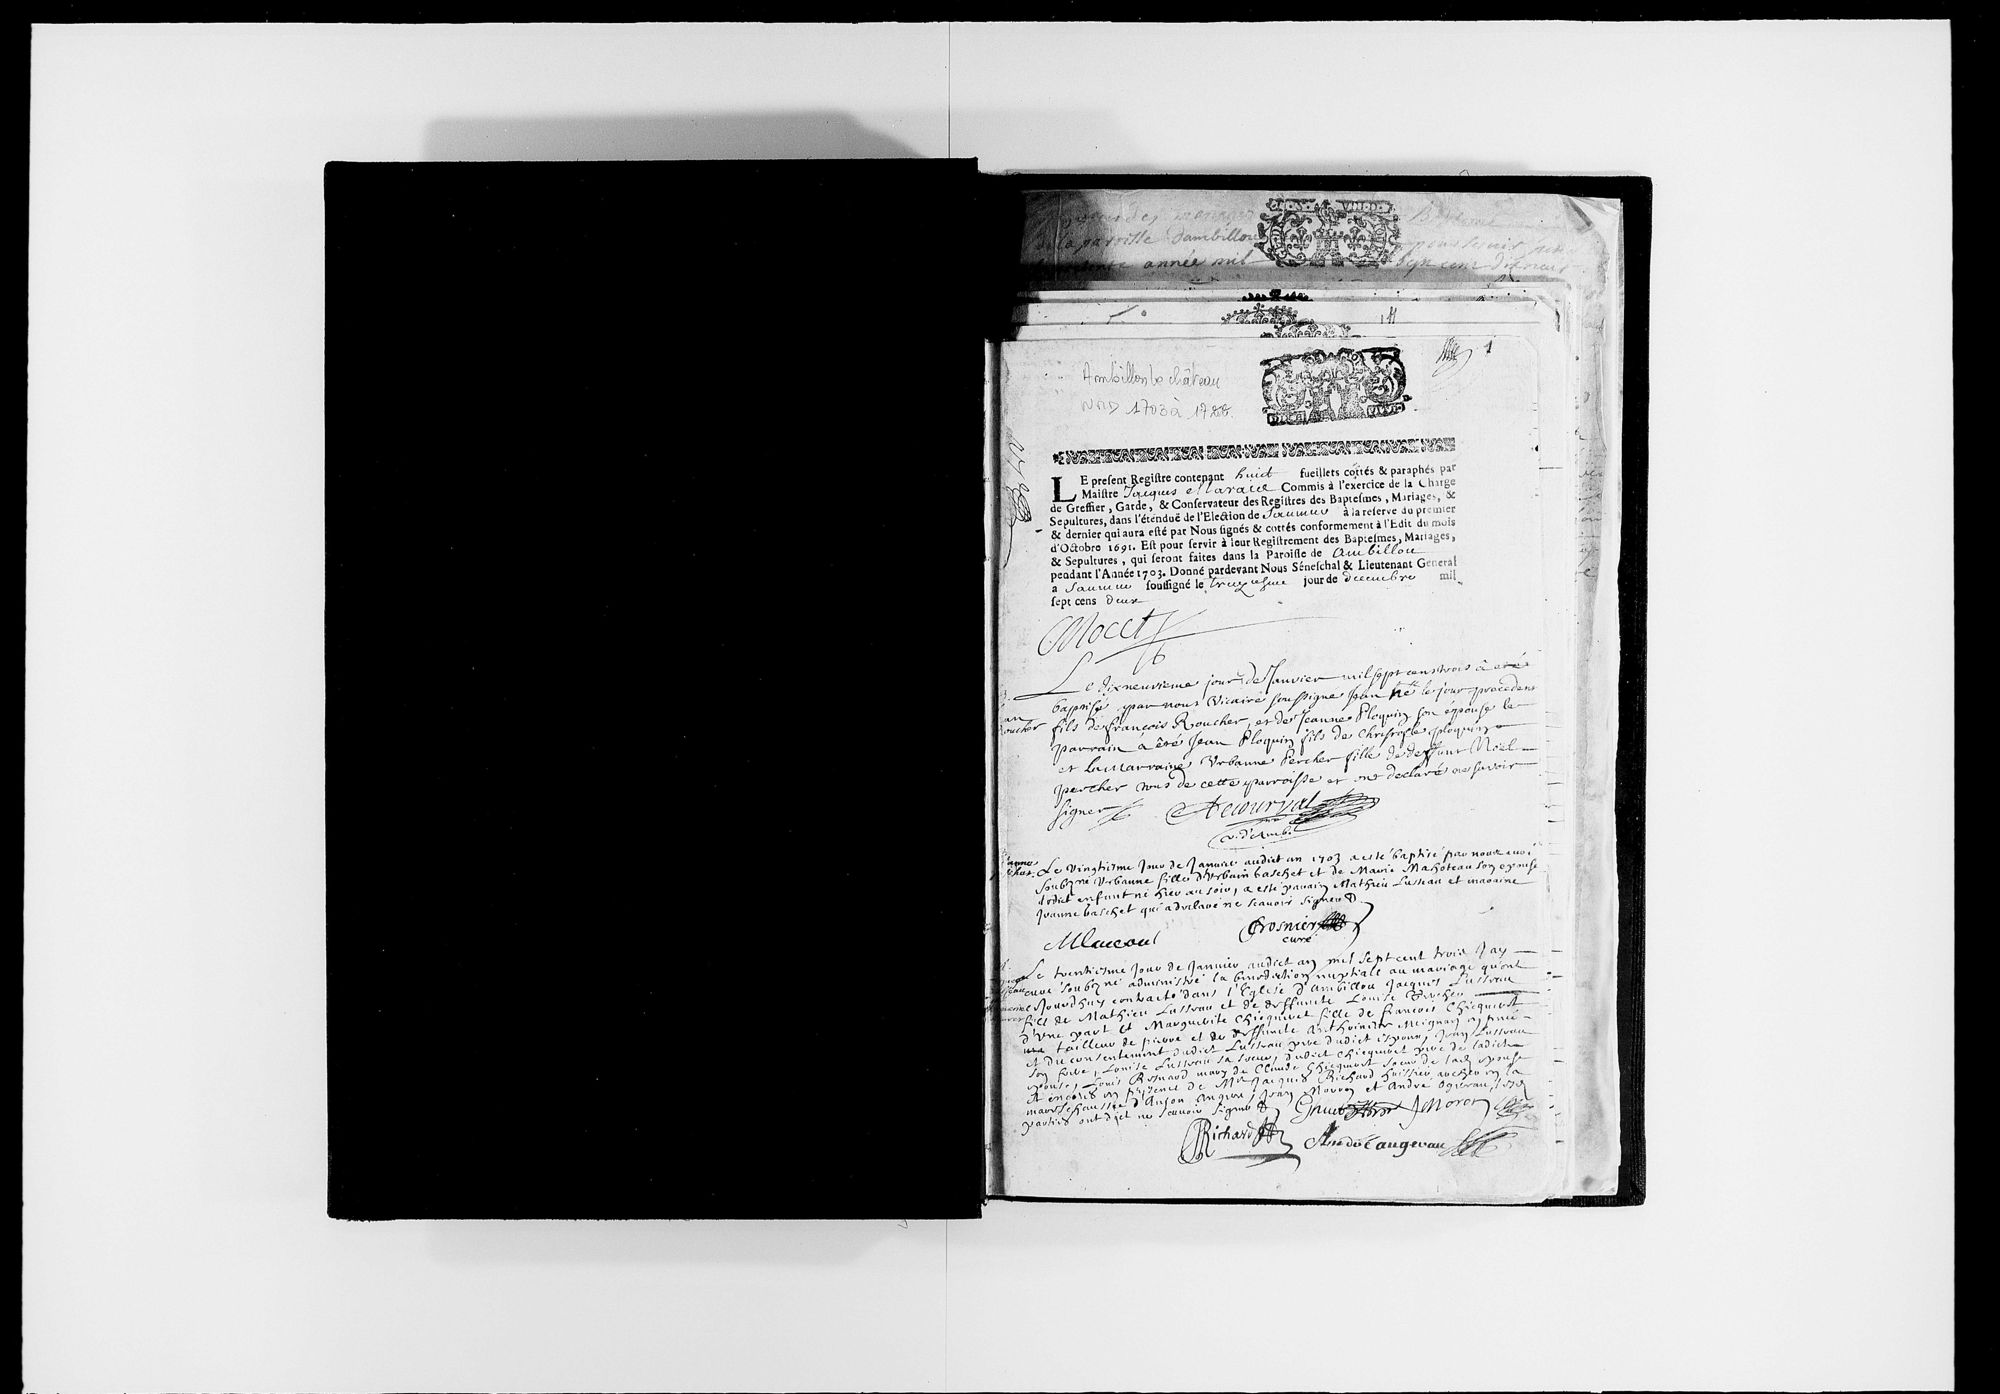 de la paroisse d'ambillou
année mil sept cens dixneuf
Ambillou le château
1703 à 1728.
1
LE present Registre contenant huict fueillets cottés & paraphés par
Maistre Jacques Commis à l'exercice de la Charge
de Greffier, Garde, & Conservateur des Registres des Baptesmes, Mariages, &
Sepultures, dans l'étenduë de l'Election de Saumur à la reserve du premier
& dernier qui aura esté par Nous signés & cottés conformement à l'Edit du mois
d'Octobre 1691. Est pour servir à leur Registrement des Baptesmes, Mariages,
& Sepultures, qui seront faites dans la Paroisse de Ambillou
pendant l'Année 1703. Donné pardevant Nous Séneschal & Lieutenant General
a Saumur soussigné le jour de decembre mil
sept cens deux
Le dixneuvieme jour de Janvier mil sept cens trois à eté
baptisé par nous Vicaire soussigné Jean né le jour precedent
fils de françois Roucher, et de Jeanne Ploquin son épouse le
parrain à êté Jean Ploquin fils de Christofle ploquin
et la marraine Urbanne Percher fille de deffunt Noël
percher tous de cette parroisse et ont declaré ne savoir
signer
v. d'Amb.
Le vingtiesme jour de Janvier audict an 1703 a esté baptisé par nous curé
soubzné Urbanne fille d'Urbain baschet et de Marie Mahoteau son epouse
ledict enfant né hier au soir, a esté parain Mathieu Lusseau et maraine
Jeanne baschet qui a declaré ne scavoir signer
MLuceau Grosnier
curé
Le trentiesme jour de Janvier audict an mil sept cent trois Jay
curé soubzné administré la benediction nuptiale au mariage qu'ont
ce Jourdhuy contracté dans l'Eglise d'Ambillou Jacques Lusseau
fils de Mathieu Lusseau et de deffuncte Louise Percher
d'Une part et Marguerite Chicquenet fille de francois Chicquenet
tailleur de pierre et de deffuncte Anthoinette Meignan
et du consentement dudict Lusseau pere dudict espoux, Jean Lusseau
son frere, Louise Lusseau sa soeur, dudict Chicquenet pere de ladicte
epouse, Louis Renard mary de Claude Chicquenet soeur de lad. epouse
et encores en presence de Mr Jacques Richard huissier archer en la
mareschaussée d'Anjou Angers, Jean Moron et André Ogereau, les
parties ont dict ne scavoir signer JMoron
Richard André augereau